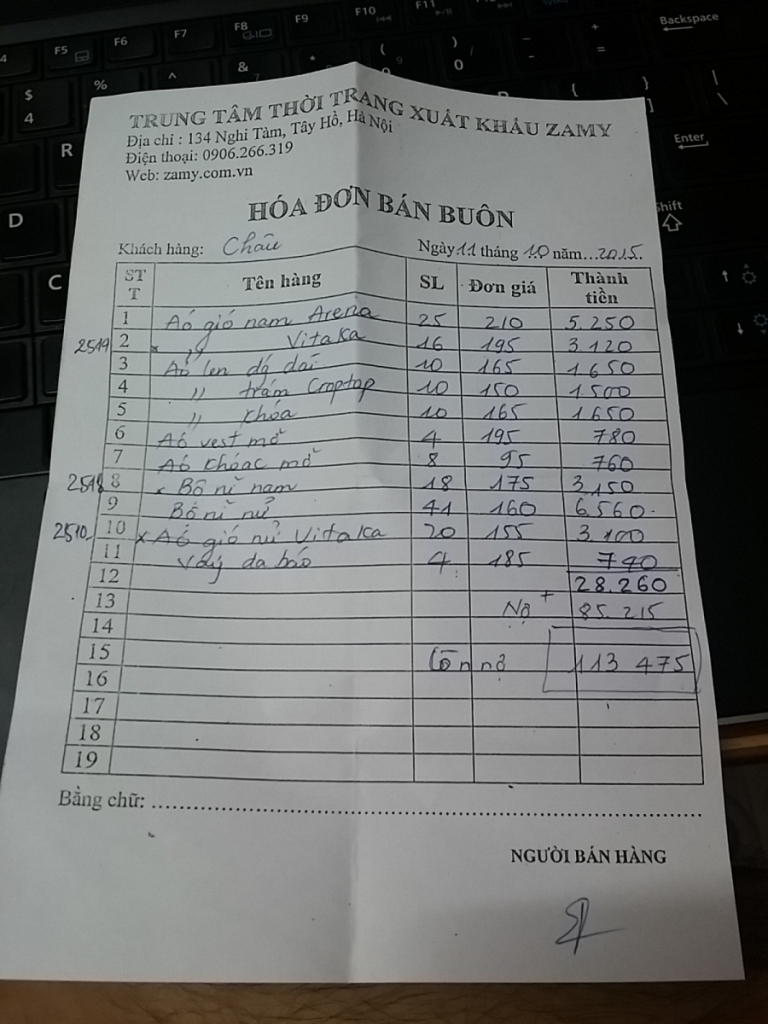 TRUNG TÂM THỜI TRANG XUẤT KHẨU ZAMY
Địa chỉ : 134 Nghi Tàm, Tây Hồ, Hà Nội
Điện thoại: 0906.266.319
Web: zamy.com.vn
HÓA ĐƠN BÁN BUÔN
Khách hàng: Châu Ngày 11 tháng 10 năm...2015.
STT Tên hàng SL Đơn giá Thành tiền
1 Aó gió nam Arena 25 210 5.250
2519 2 x 〃 Vitaka 16 195 3.120
3 Aó len dệ dài 10 165 1.650
4 〃 trám Croptop 10 150 1.500
5 〃 khóa 10 165 1.650
6 Aó vest mỡ 4 195 780
7 Aó khóac mỡ 8 95 760
2518 8 x Bộ nỉ nam 18 175 3.150
9 Bộ nỉ nữ 41 160 6.560.
2510 10 x Aó gió nữ Vitaka 20 155 3.100
11 Váy da báo 4 185 740
12 28.260
13 Nợ + 85.215
14
15 Còn nợ 113 475
16
17
18
19
Bằng chữ: ........................................
NGƯỜI BÁN HÀNG
F5 F6 F7 F8 F9 F10 F11
Backspace
Enter
Shift
$ 4
%
^
&
*
( 9
) 0
R
D
C